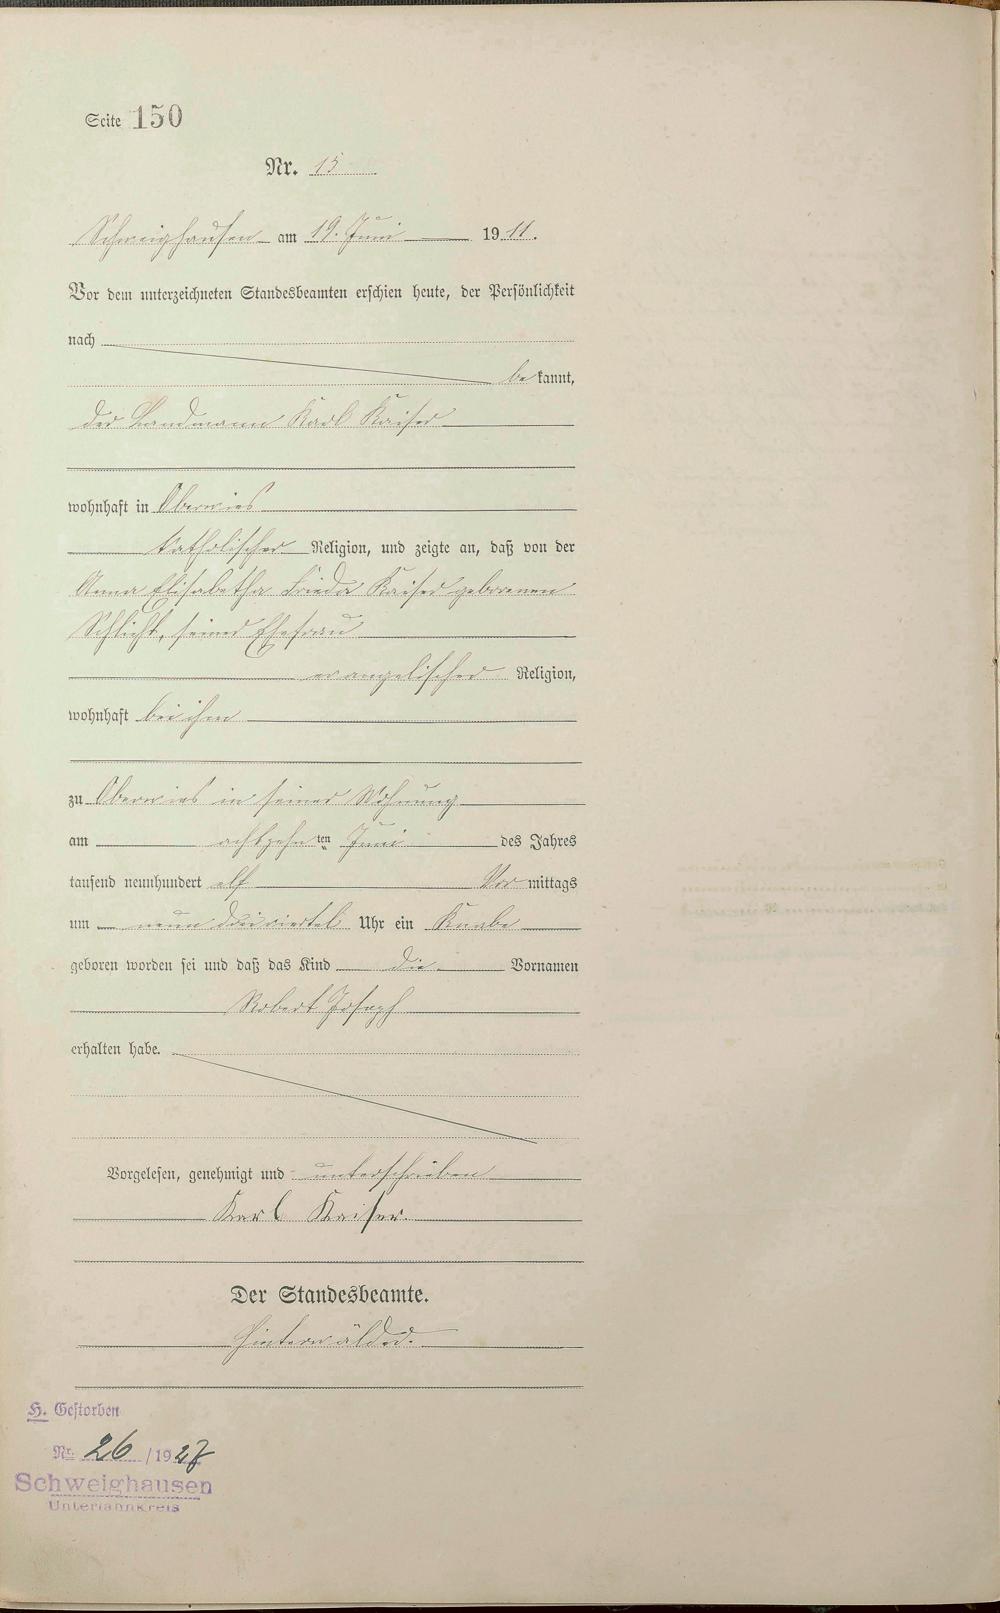 Seite 150
Nr. 15
Schweighausen am 19. Juni 1911.
Vor dem unterzeichneten Standesbeamten erschien heute, der Persönlichkeit
nach
be kannt,
der Landmann Karl Kaiser
wohnhaft in Oberwies
katholischer Religion, und zeigte an, daß von der
Anna Elisabetha Frieda Kaiser geborenen
Schlicht, seiner Ehefrau
evangelischer Religion,
wohnhaft bei ihm
zu Oberwies in seiner Wohnung
am achtzehn ten Juni des Jahres
tausend neunhundert elf Vor mittags
um neun dreiviertel Uhr ein Knabe
geboren worden sei und daß das Kind die Vornamen
Robert Joseph
erhalten habe.
Vorgelesen, genehmigt und unterschrieben
Karl Kaiser.
Der Standesbeamte.
Hinterwälder.
H. Gestorben
Nr. 26 /19
Schweighausen
Unterlahnkreis